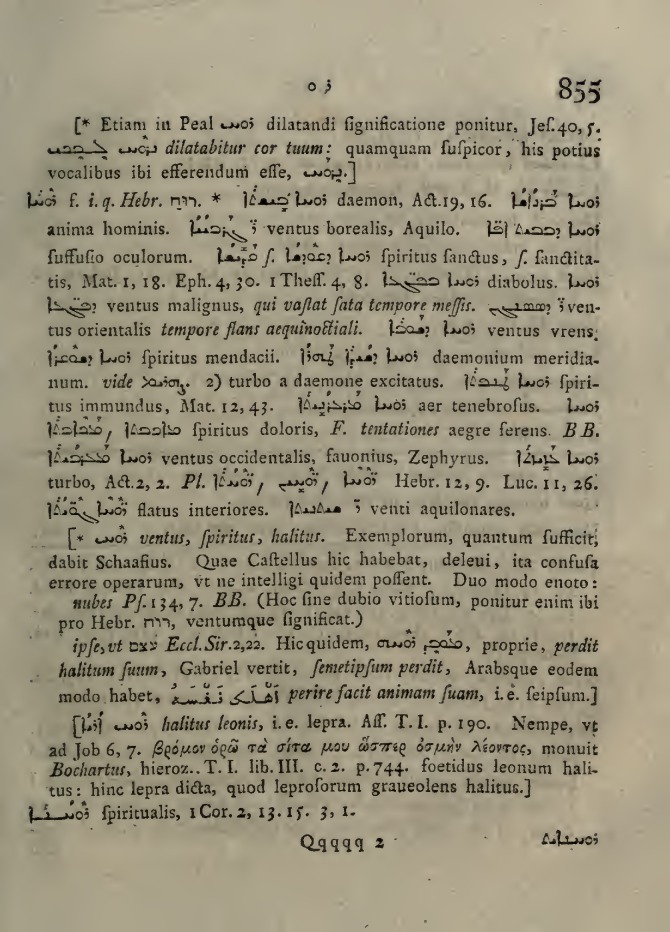 ܪܘ 855
[* Etiam in Peal ܪܘܚ dilatandi ſignificatione ponitur, Jeſ. 40, 5.
ܢܪܘܚ ܠܒܟܝ dilatabitur cor tuum: quamquam ſuſpicor, his potius
vocalibus ibi efferendum eſſe, ܢܪܘܚ.]
ܪܘܚܐ f. i. q. Hebr. רוח. * ܪܘܚܐ daemon, Act. 19, 16. ܪܘܚܐ
anima hominis. ventus borealis, Aquilo. ܪܘܚܐ
ſuffuſio oculorum. ܪܘܚܐ ܕܩܘܕܫܐ ſ. ſpiritus ſanctus, ſ. ſanctita-
tis, Mat. 1, 18. Eph. 4, 30. 1 Theſſ. 4, 8. ܪܘܚܐ diabolus. ܪܘܚܐ
ventus malignus, qui vaſtat ſata tempore meſſis. ven-
tus orientalis tempore flans aequinoctiali. ܪܘܚܐ ventus vrens.
ܪܘܚܐ ſpiritus mendacii. ܪܘܚܐ daemonium meridia-
num. vide 2) turbo a daemone excitatus. ܪܘܚܐ ܛܢܦܬܐ ſpiri-
tus immundus, Mat. 12, 43. ܪܘܚܐ aer tenebroſus. ܪܘܚܐ
ſpiritus doloris, F. tentationes aegre ferens. BB.
ܪܘܚܐ ܡܥܪܒܝܬܐ ventus occidentalis, fauonius, Zephyrus. ܪܘܚܐ ܥܙܝܙܬܐ
turbo, Act. 2, 2. Pl. ܪܘܚܬܐ, ܪܘܚܝܢ, ܪܘܚܐ Hebr. 12, 9. Luc. 11, 26.
flatus interiores. venti aquilonares.
[* ܪܘܚ ventus, ſpiritus, halitus. Exemplorum, quantum ſufficit,
dabit Schaafius. Quae Caſtellus hic habebat, deleui, ita confuſa
errore operarum, vt ne intelligi quidem poſſent. Duo modo enoto:
nubes Pſ. 134, 7. BB. (Hoc ſine dubio vitioſum, ponitur enim ibi
pro Hebr. רוח, ventumque ſignificat.)
ipſe, vt עצם Eccl. Sir. 2, 22. Hic quidem, ܡܘܒܕ ܪܘܚܗ, proprie, perdit
halitum ſuum, Gabriel vertit, ſemetipſum perdit, Arabsque eodem
modo habet, أَهْلَكَ نَفْسَهُ perire facit animam ſuam, i. e. ſeipſum.]
[ܪܘܚ ܐܪܝܐ halitus leonis, i. e. lepra. Aſſ. T. I. p. 190. Nempe, vt
ad Job 6, 7. βρόμον ὁρῶ τὰ σῖτα μου ὥσπερ ὀσμὴν λέοντος, monuit
Bochartus, hieroz.. T. I. lib. III. c. 2. p. 744. foetidus leonum hali-
tus: hinc lepra dicta, quod leproſorum graueolens halitus.]
ܪܘܚܢܐ ſpiritualis, 1 Cor. 2, 13. 15. 3, 1.
Qqqqq 2 ܪܘܚܢܐܝܬ